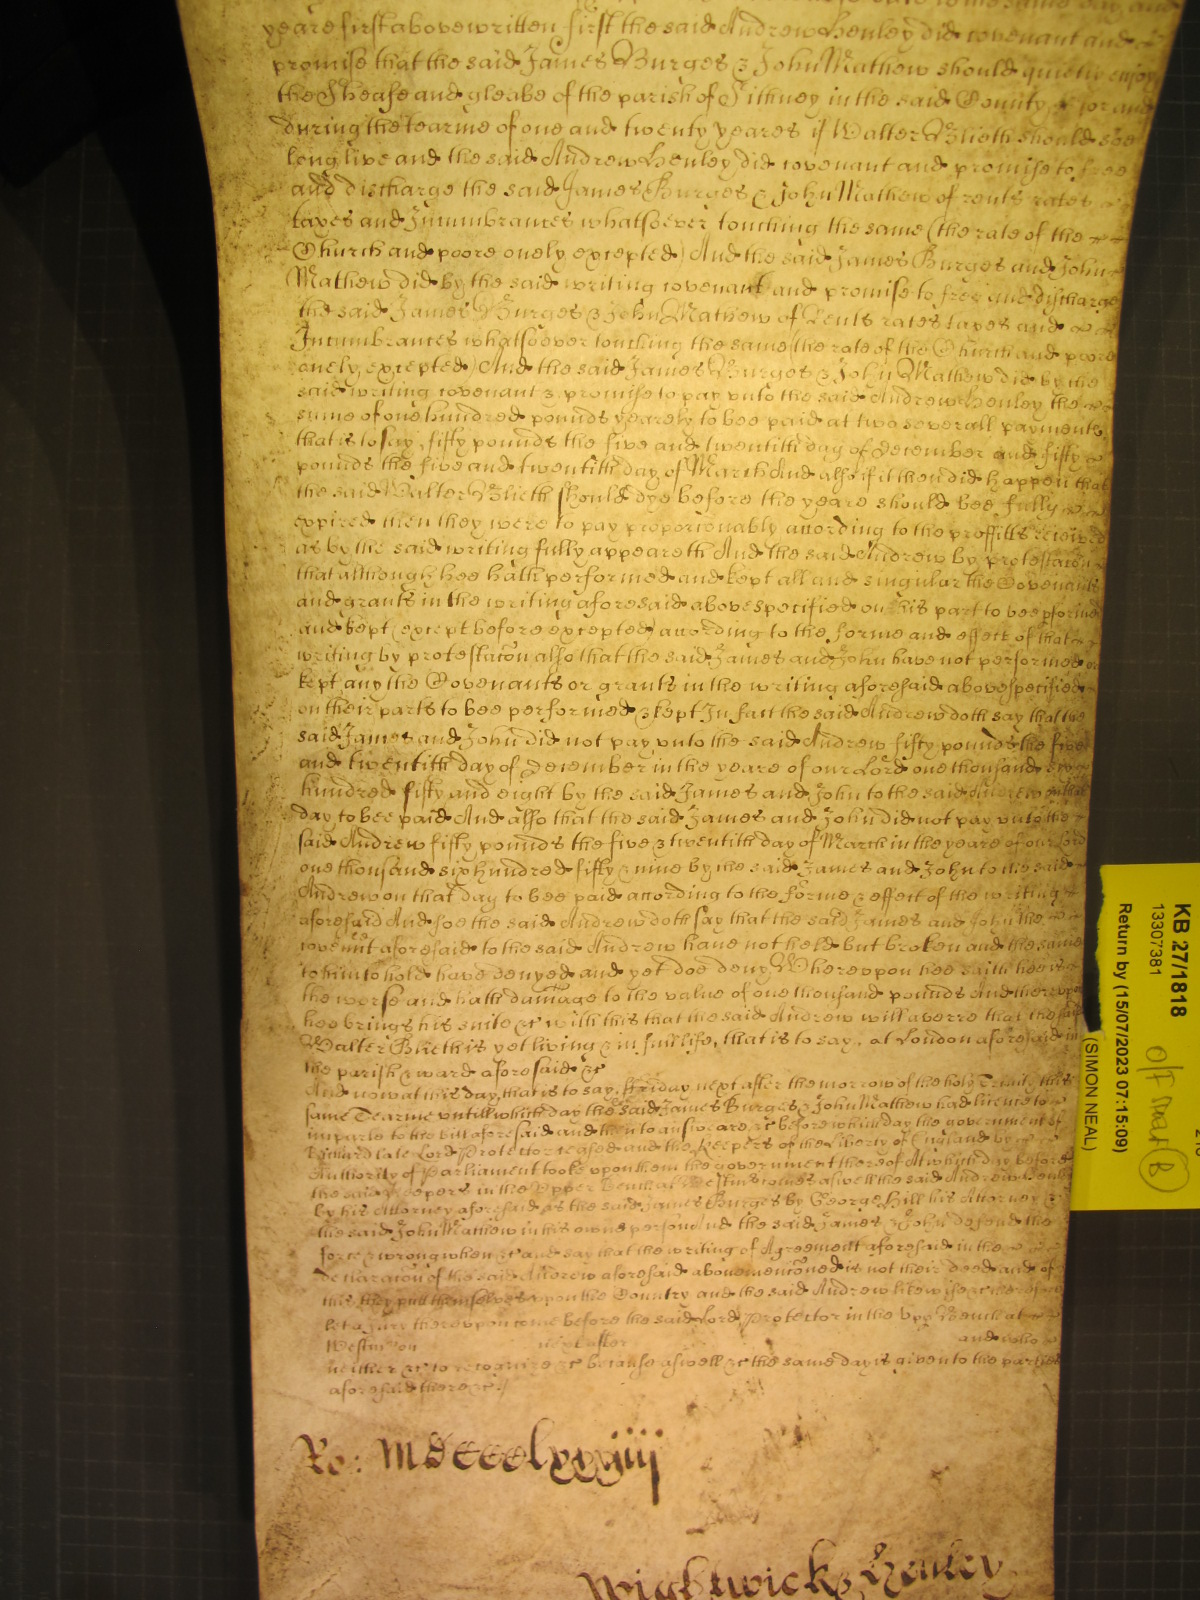 yeare first abovewritten first the said Andrew Henley did covenant and
promise that the said James Burges & John Mathew should quietly enjoy
the Sheafe and gleabe of the parish of Sithney in the said County for and
during the tearme of one and twenty yeares if Walter Blieth should soe
long live and the said Andrew Henley did covenant and promise to free
and discharge the said James Burges & John Mathew of rents rates
taxes and Incumbrances whatsoever touching the same (the rate of the
Church and poore onely excepted) And the said James Burges and John
Mathew did by the said writing covenant and promise to free and discharge
the said James Burges & John Mathew of Rents rates taxes and
Incumbrances whatsoever touching the same (the rate of the Church and poore
onely excepted) And the said James Burges & John Mathew did by the
said writing covenant & promise to pay unto the said Andrew Henley the
sume of one hundred pounds yearely to bee paid at two severall payments
that is to say, fifty pounds the five and twentith day of December and fifty
pounds the five and twentith day of March And also if it then did happen that
the said Walter Blieth should dye before the yeare should bee fully
expired then they were to pay proporcionably according to the proffitts received
as by the said writing fully appeareth And the said Andrew by protestacon
that although hee hath performed and kept all and singular the Covenants
and grants in the writing aforesaid abovespecified on his part to bee pformed
and kept (except before excepted) according to the forme and effect of that
writing by protestacon also that the said James and John have not performed or
kept any the Covenants or grants in the writing aforesaid abovespecified
on their parts to bee performed & kept In fact the said Andrew doth say that the
said James and John did not pay unto the said Andrew fifty pounds the five
and twentith day of December in the yeare of our Lord one thousand six
hundred fifty and eight by the said James and John to the said Andrew on that
day to bee paid And also that the said James and John did not pay unto the
said Andrew fifty pounds the five & twentith day of March in the yeare of our Lord
one thousand six hundred fifty & nine by the said James and John to the said
Andrew on that day to bee paid according to the forme & effect of the writing
aforesaid And soe the said Andrew doth say that the said James and John the
covennt aforesaid to the said Andrew have not held but broken and the same
to him to hold have denyed and yet doe deny Whereupon hee saith hee is
the worse and hath damage to the value of one thousand pounds And thereupon
hee brings his suite &c with this that the said Andrew will averre that the said
Walter Blieth is yet living & in full life, that is to say, at London aforesaid in
the parish & ward aforesaid &c
And now at this day, that is to say, ffriday next after the morrow of the holy Trinity this
same Tearme untill which day the said James Burges & John Mathew had licence to
imparle to the bill aforesaid and then to answeare &c before which day the government of
Richard late Lord Protector ceased and the Keepers of the Liberty of England by
Authority of Parliament tooke upon them the government thereof At which day before
the said Keepers in the Upper Bench at Westm comes aswell the said Andrew Henley
by his Attorney aforesaid as the said James Burges by George Hill his Attorney &
the said John Mathew in his owne person And the said James & John defend the
force & wrong when &c and say that the writing of Agreement aforesaid in the
declaracon of the said Andrew aforesaid abovemenconed is not their deed and of
this they put themselves upon the Country and the said Andrew likewise &c therefore
let a Jury thereupon come before the said Lord Protector in the Upp Bench at
Westm on next after and who
neither &c to recognize &c because aswell &c the same day is given to the parties
aforesaid there &c
Ro: Mdccclxxxiiij
Wightwick & Henley
KB 27/1818
13307381
Return by (15/07/2023 07:15:09)
(SIMON NEAL)
B